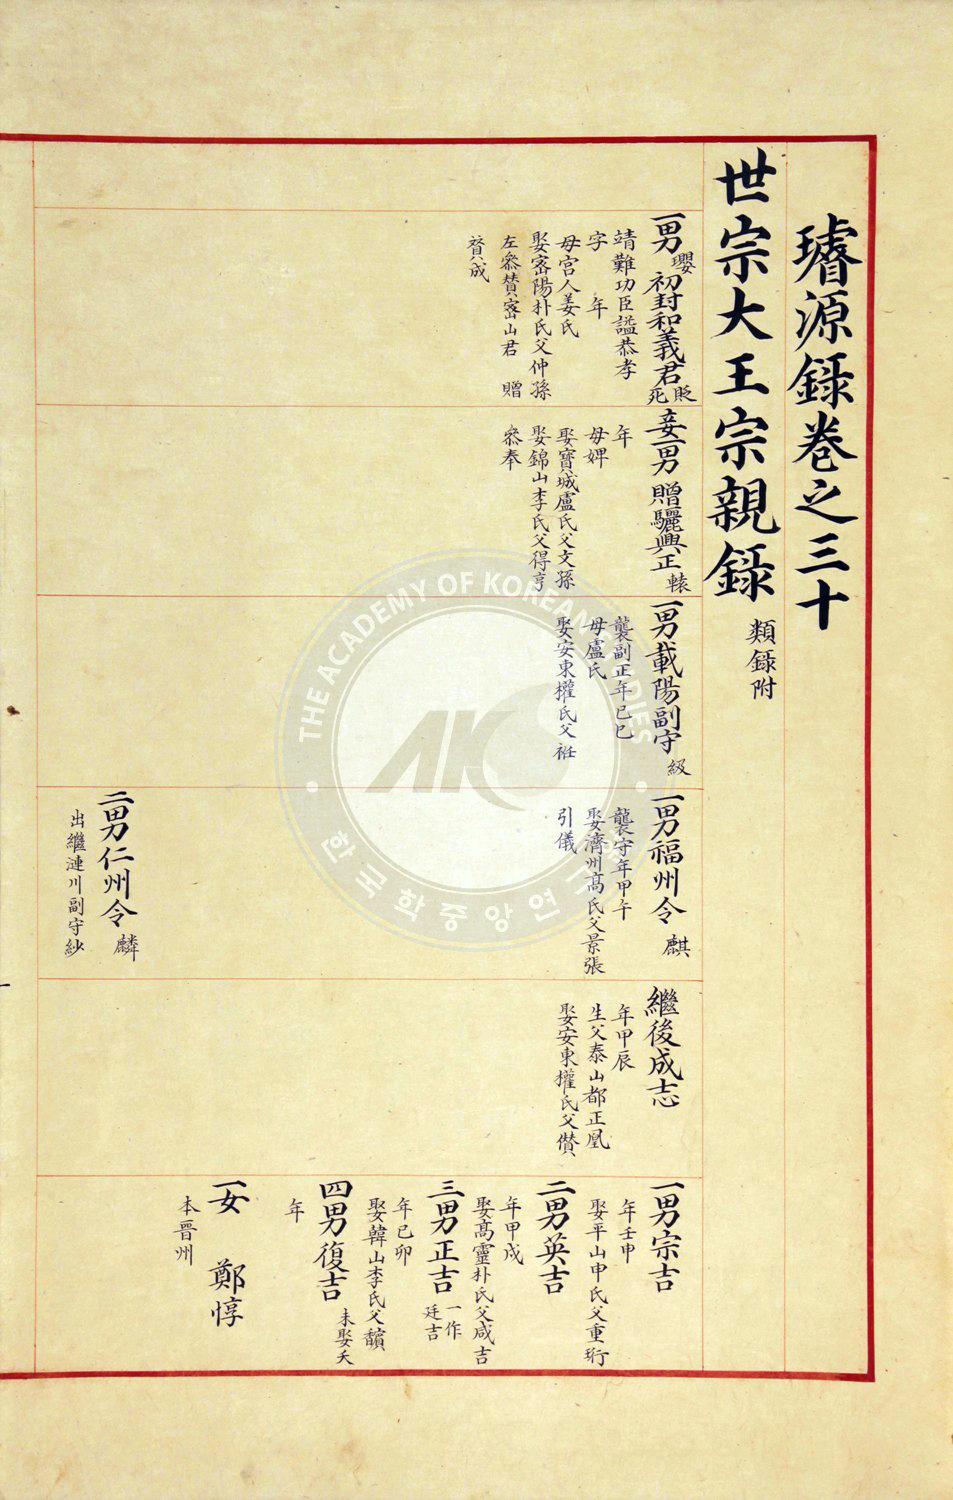 璿源錄卷之三十
世宗大王宗親錄 類錄附
一男瓔初封和義君貶死
靖難功臣諡恭孝
字 年
母宮人姜氏
娶密陽朴氏父仲孫
左叅贊密山君 贈
贊成
妾一男贈驪興正轅
年
母婢
娶寶城盧氏父文孫
娶錦山李氏父得亨
叅奉
一男載陽副守級
襲副正年已巳
母盧氏
娶安東權氏父
一男福州令麒
襲守年甲午
娶濟州高氏父景張
引儀
二男仁州令麟
出繼漣川副守紗
繼後成志
年甲辰
生父泰山都正凰
娶安東權氏父儧
一男宗吉
年壬申
娶平山申氏父重珩
二男英吉
年甲戌
娶高靈朴氏父咸吉
三男正吉 一作廷吉
年己卯
娶韓山李氏父馪
四男復吉 未娶夭
年
一女 鄭惇
本晋州
THE ACADEMY OF KOREAN STUDIES
AKS
한국학중앙연구원